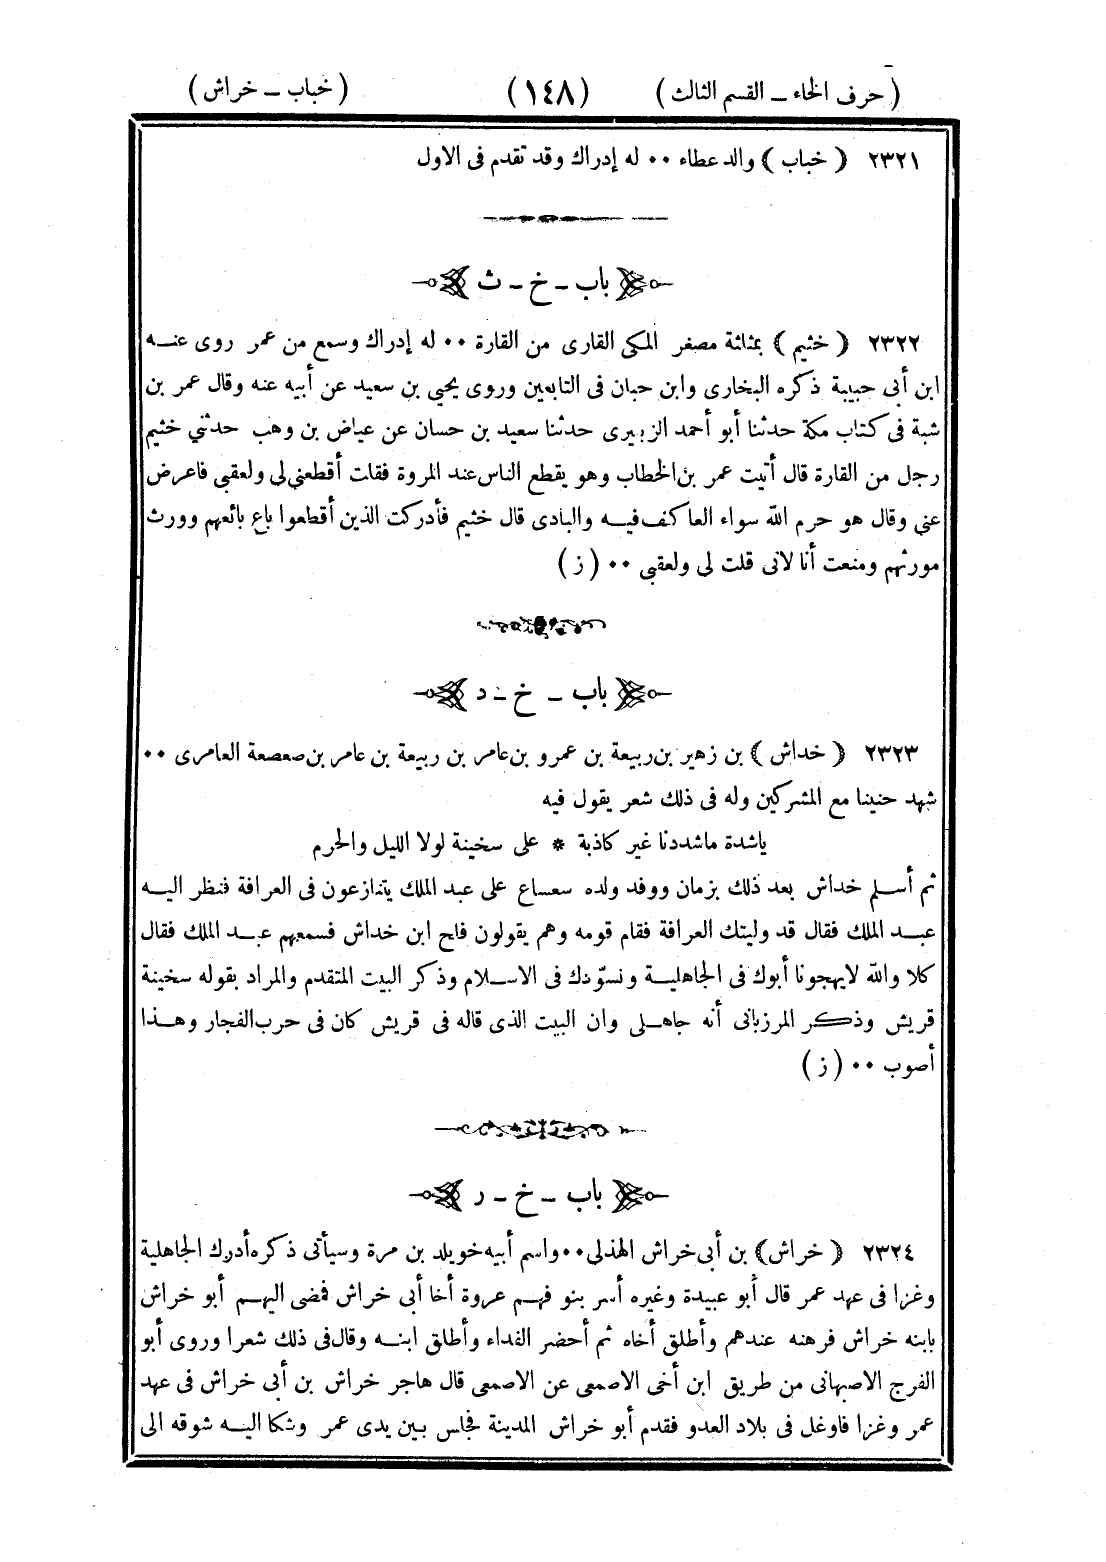 ( حرف الخاء ــ القسم الثالث ) (١٤٨) ( خباب ــ خراش )
٢٣٢١ ( خباب ) والد عطاء ٠٠ له إدراك وقد تقدم فى الاول
باب ــ خ ــ ث
٢٣٢٢ ( خثيم ) بمثلثة مصغر المكى القارى من القارة ٠٠ له إدراك وسمع من عمر روى عنه
ابن أبى حبيبة ذكره البخارى وابن حبان فى التابعين وروى يحيي بن سعيد عن أبيه عنه وقال عمر بن
شبة فى كتاب مكة حدثنا أبو أحمد الزبيرى حدثنا سعيد بن حسان عن عياض بن وهب حدثني خثيم
رجل من القارة قال أتيت عمر بن الخطاب وهو يقطع الناس عند المروة فقلت أقطعني لى ولعقبي فاعرض
عني وقال هو حرم الله سواء العاكف فيه والبادى قال خثيم فأدركت الذين أقطعوا باع بائعهم وورث
مورثهم ومنعت أنا لانى قلت لى ولعقبي ٠٠ ( ز )
باب ــ خ ــ د
٢٣٢٣ ( خداش ) بن زهير بن ربيعة بن عمرو بن عامر بن ربيعة بن عامر بن صعصعة العامرى ٠٠
شهد حنينا مع المشركين وله فى ذلك شعر يقول فيه
ياشدة ماشددنا غير كاذبة * على سخينة لولا الليل والحرم
ثم أسلم خداش بعد ذلك بزمان ووفد ولده سعساع على عبد الملك يتنازعون فى العرافة فنظر اليه
عبد الملك فقال قد وليتك العرافة فقام قومه وهم يقولون فلح ابن خداش فسمعهم عبد الملك فقال
كلا والله لايهجونا أبوك فى الجاهلية ونسوّدك فى الاسلام وذكر البيت المتقدم والمراد بقوله سخينة
قريش وذكر المرزبانى أنه جاهلى وان البيت الذى قاله فى قريش كان فى حرب الفجار وهذا
أصوب ٠٠ ( ز )
باب ــ خ ــ ر
٢٣٢٤ ( خراش ) بن أبى خراش الهذلى ٠٠ واسم أبيه خويلد بن مرة وسيأتى ذكره أدرك الجاهلية
وغزا فى عهد عمر قال أبو عبيدة وغيره أسر بنو فهم عروة أخا أبى خراش فمضى اليهم أبو خراش
بابنه خراش فرهنه عندهم وأطلق أخاه ثم أحضر الفداء وأطلق ابنه وقال فى ذلك شعرا وروى أبو
الفرج الاصبهانى من طريق ابن أخى الاصمعى عن الاصمعى قال هاجر خراش بن أبى خراش فى عهد
عمر وغزا فاوغل فى بلاد العدو فقدم أبو خراش المدينة فجلس بين يدى عمر وشكا اليه شوقه الى